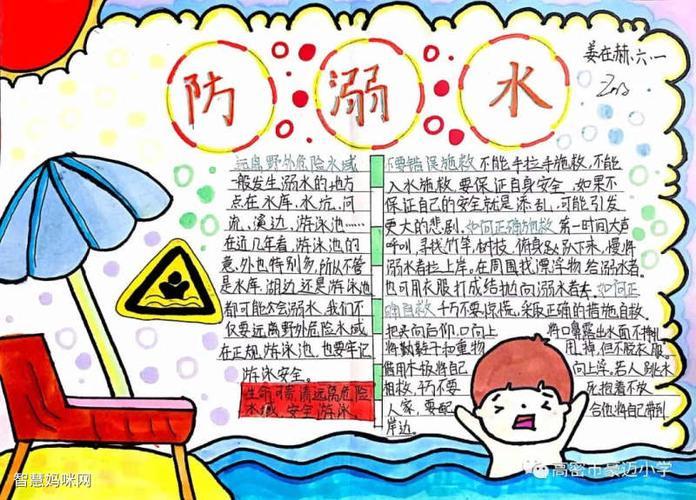 防溺水
姜在赫.六.一
远离野外危险水域
一般发生溺水的地方
点在水库、水坑、河
流、溪边、游泳池……
在近几年看,游泳池的
意外也特别多,所以不管
是水库、湖边,还是游泳池
都可能会溺水,我们不
仅要远离野外危险水域
在正规游泳池,也要牢记
游泳安全。
生命可贵,请远离危险
水域,安全游泳
不要错误施救 不能手拉手施救,不能
入水施救.要保证自身安全,如果不
保证自己的安全就是添乱,可能引发
更大的悲剧.如何正确施救 第一时间大声
呼叫,寻找竹竿,树枝,俯身趴下来,慢将
溺水者拉上岸。在周围找漂浮物给溺水者。
也可用衣服打成结抛向溺水者去.如何正
确自救 千万不要惊慌,采取正确的措施自救。
把头向后仰,口向上 将口鼻露出水面不挣扎
将鞋子和重物 甩掉,但不脱衣服。
借用木板将自己 向上浮,若人跳水
相救,千万不要 死抱着不放
人家,要配 合他将自己带到
岸边.
智慧妈咪网
高密市豪迈小学